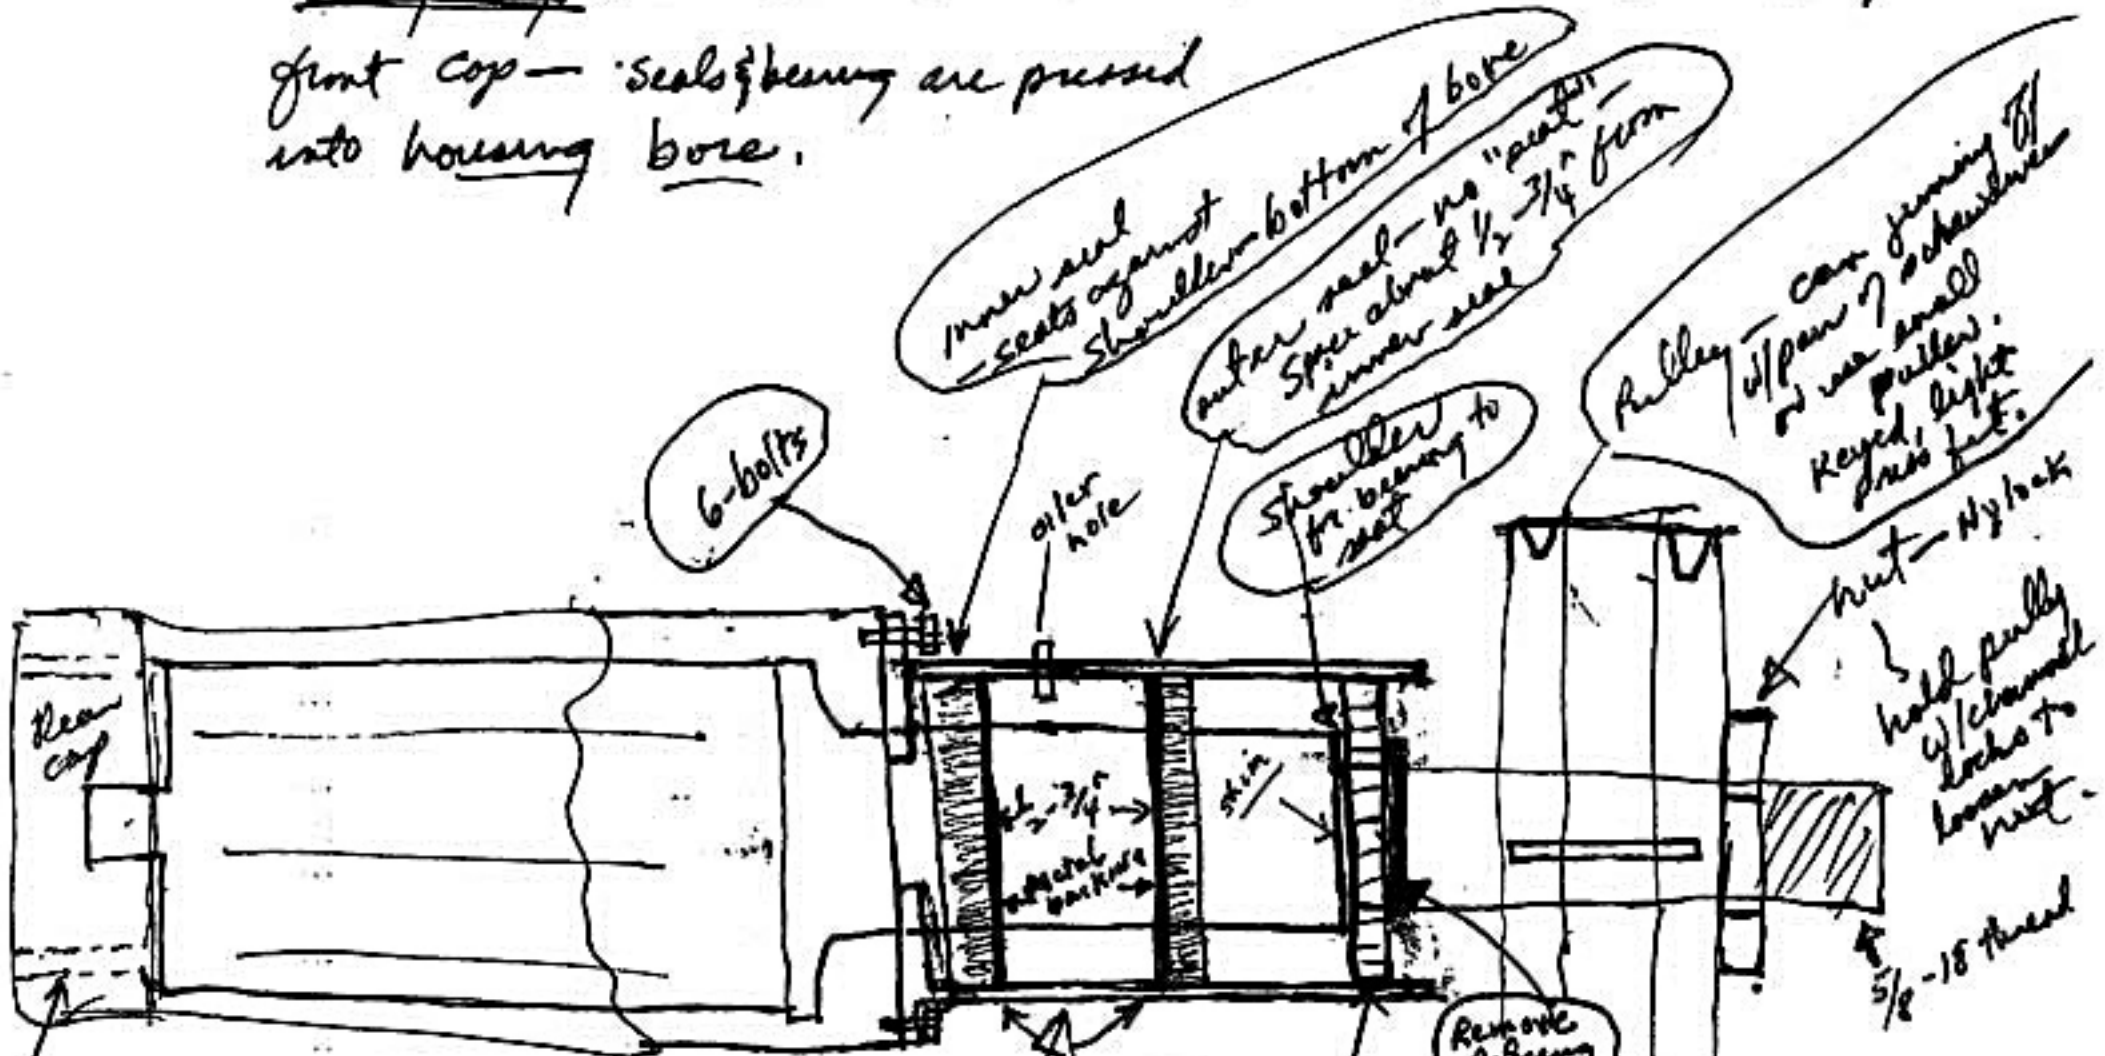 front cap — seals & bearing are pressed
into housing bore.
inner seal
seats against
shoulder bottom of bore
outer seal — no "seat" —
space about 1/2 - 3/4" from
inner seal
Pulley — can
w/pair of
or use small
puller.
Keyed, light
press fit.
6-bolts
oiler
hole
shoulder
for bearing to
seat
nut — Nylock
hold pully
w/channel
locks to
loosen
nut.
Rear
cap
1/2 - 3/4"
metal
backing
skin
5/8 - 18 thread
Remove